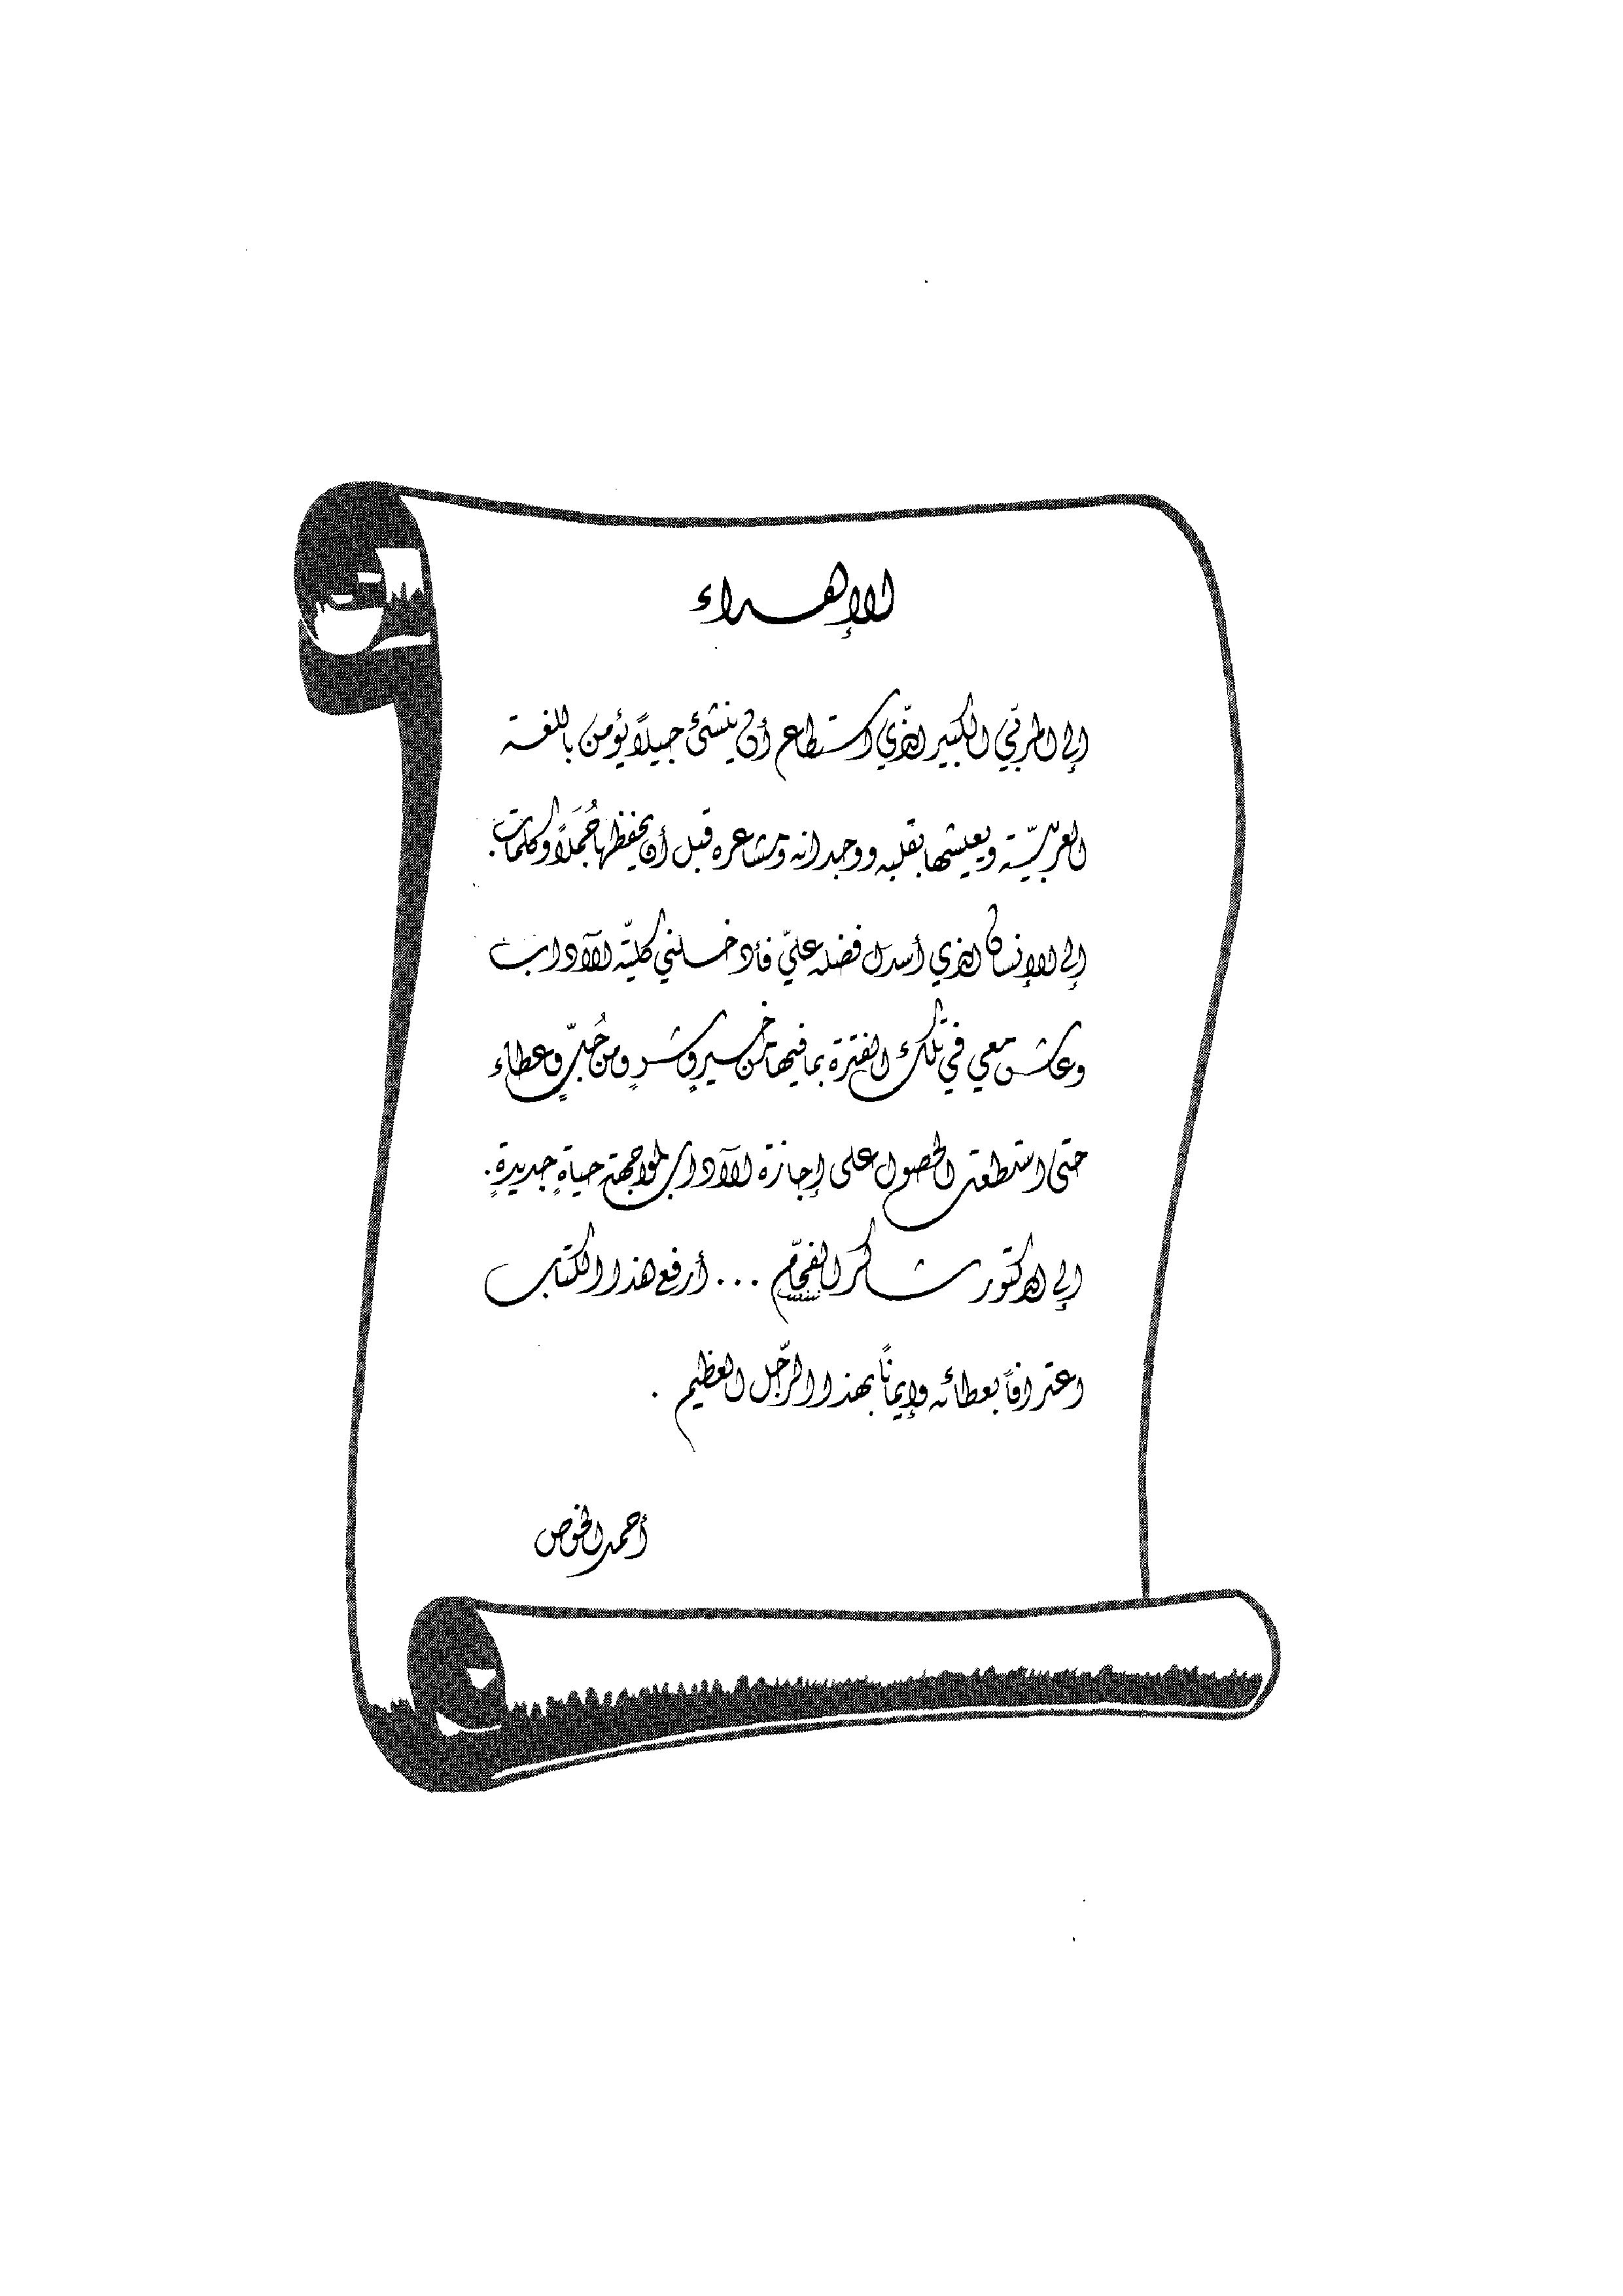 الإهداء
إلى المربّي الكبير الذّي استطاع أن ينشئ جيلاً يؤمن باللغة
العربيّة ويعيشها بقلبه ووجدانه ومشاعره قبل أن يحفظها جُمَلاً وكلمات.
إلى الإنسان الذي أسدل فضله عليّ فأدخلني كليّة الآداب
وعاش معي في تلك الفترة بما فيها من خيرٍ وشرٍ ومن حُبٍّ وعطاء
حتى استطعت الحصول على إجازة الآداب لمواجهة حياةٍ جديدةٍ.
إلى الدكتور شاكر الفحّام ... أرفع هذا الكتاب
اعترافاً بعطائه وإيماناً بهذا الرّجل العظيم .
أحمد الخوص